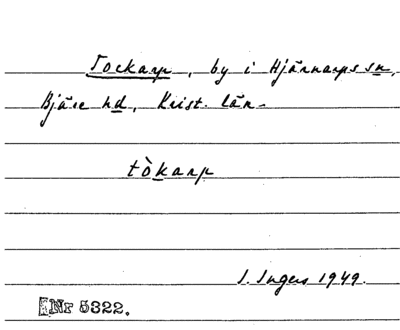 Tockarp, by i Hjärnarps sn,
Bjäre hd, Krist. län.
tòkarp
I. Ingers 1949.
Nr 5322.